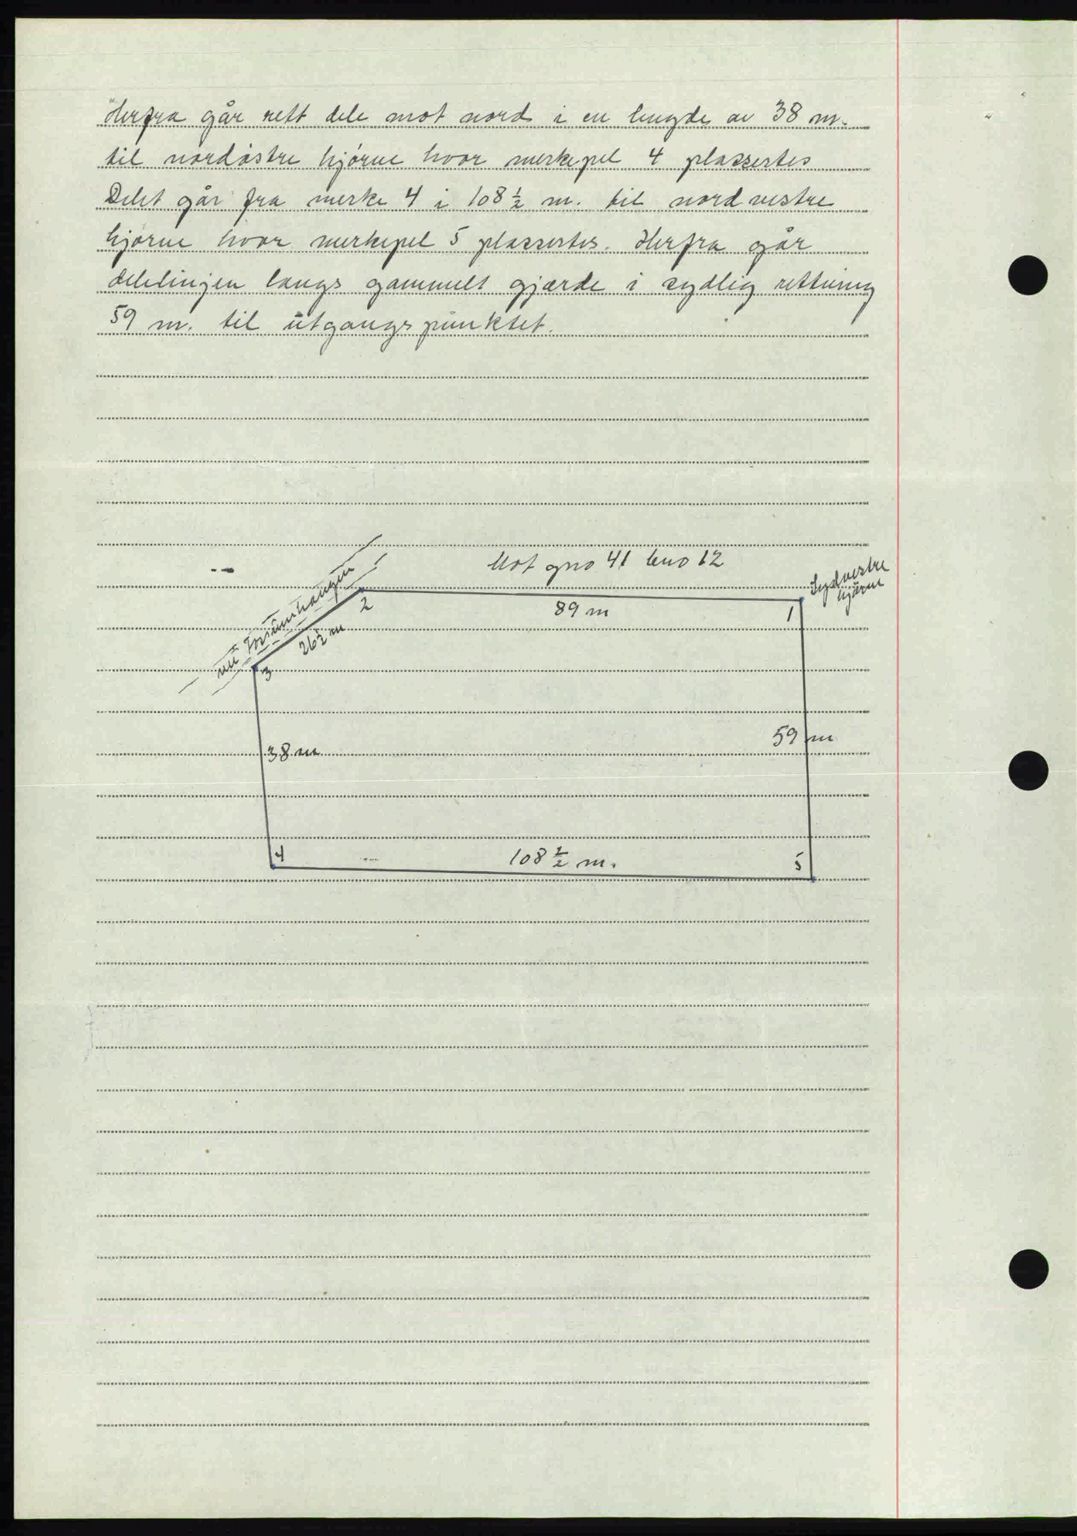 Herfra går rett dele mot nord i en lengde av 38 m.
til nordöstre hjörne hvor merkepel 4 plassertes
Delet går fra merke 4 i 108 ½ m. til nordvestre
hjörne hvor merkepel 5 plassertes. Herfra går
delelinjen langs gammelt gjærde i sydlig rettning
59 m. til utgangspunktet.
Mot gno 41 bno 12
Sydvestre
hjörne
89 m
1
2
26½ m
3
38 m
59 m
4
108 ½ m.
5